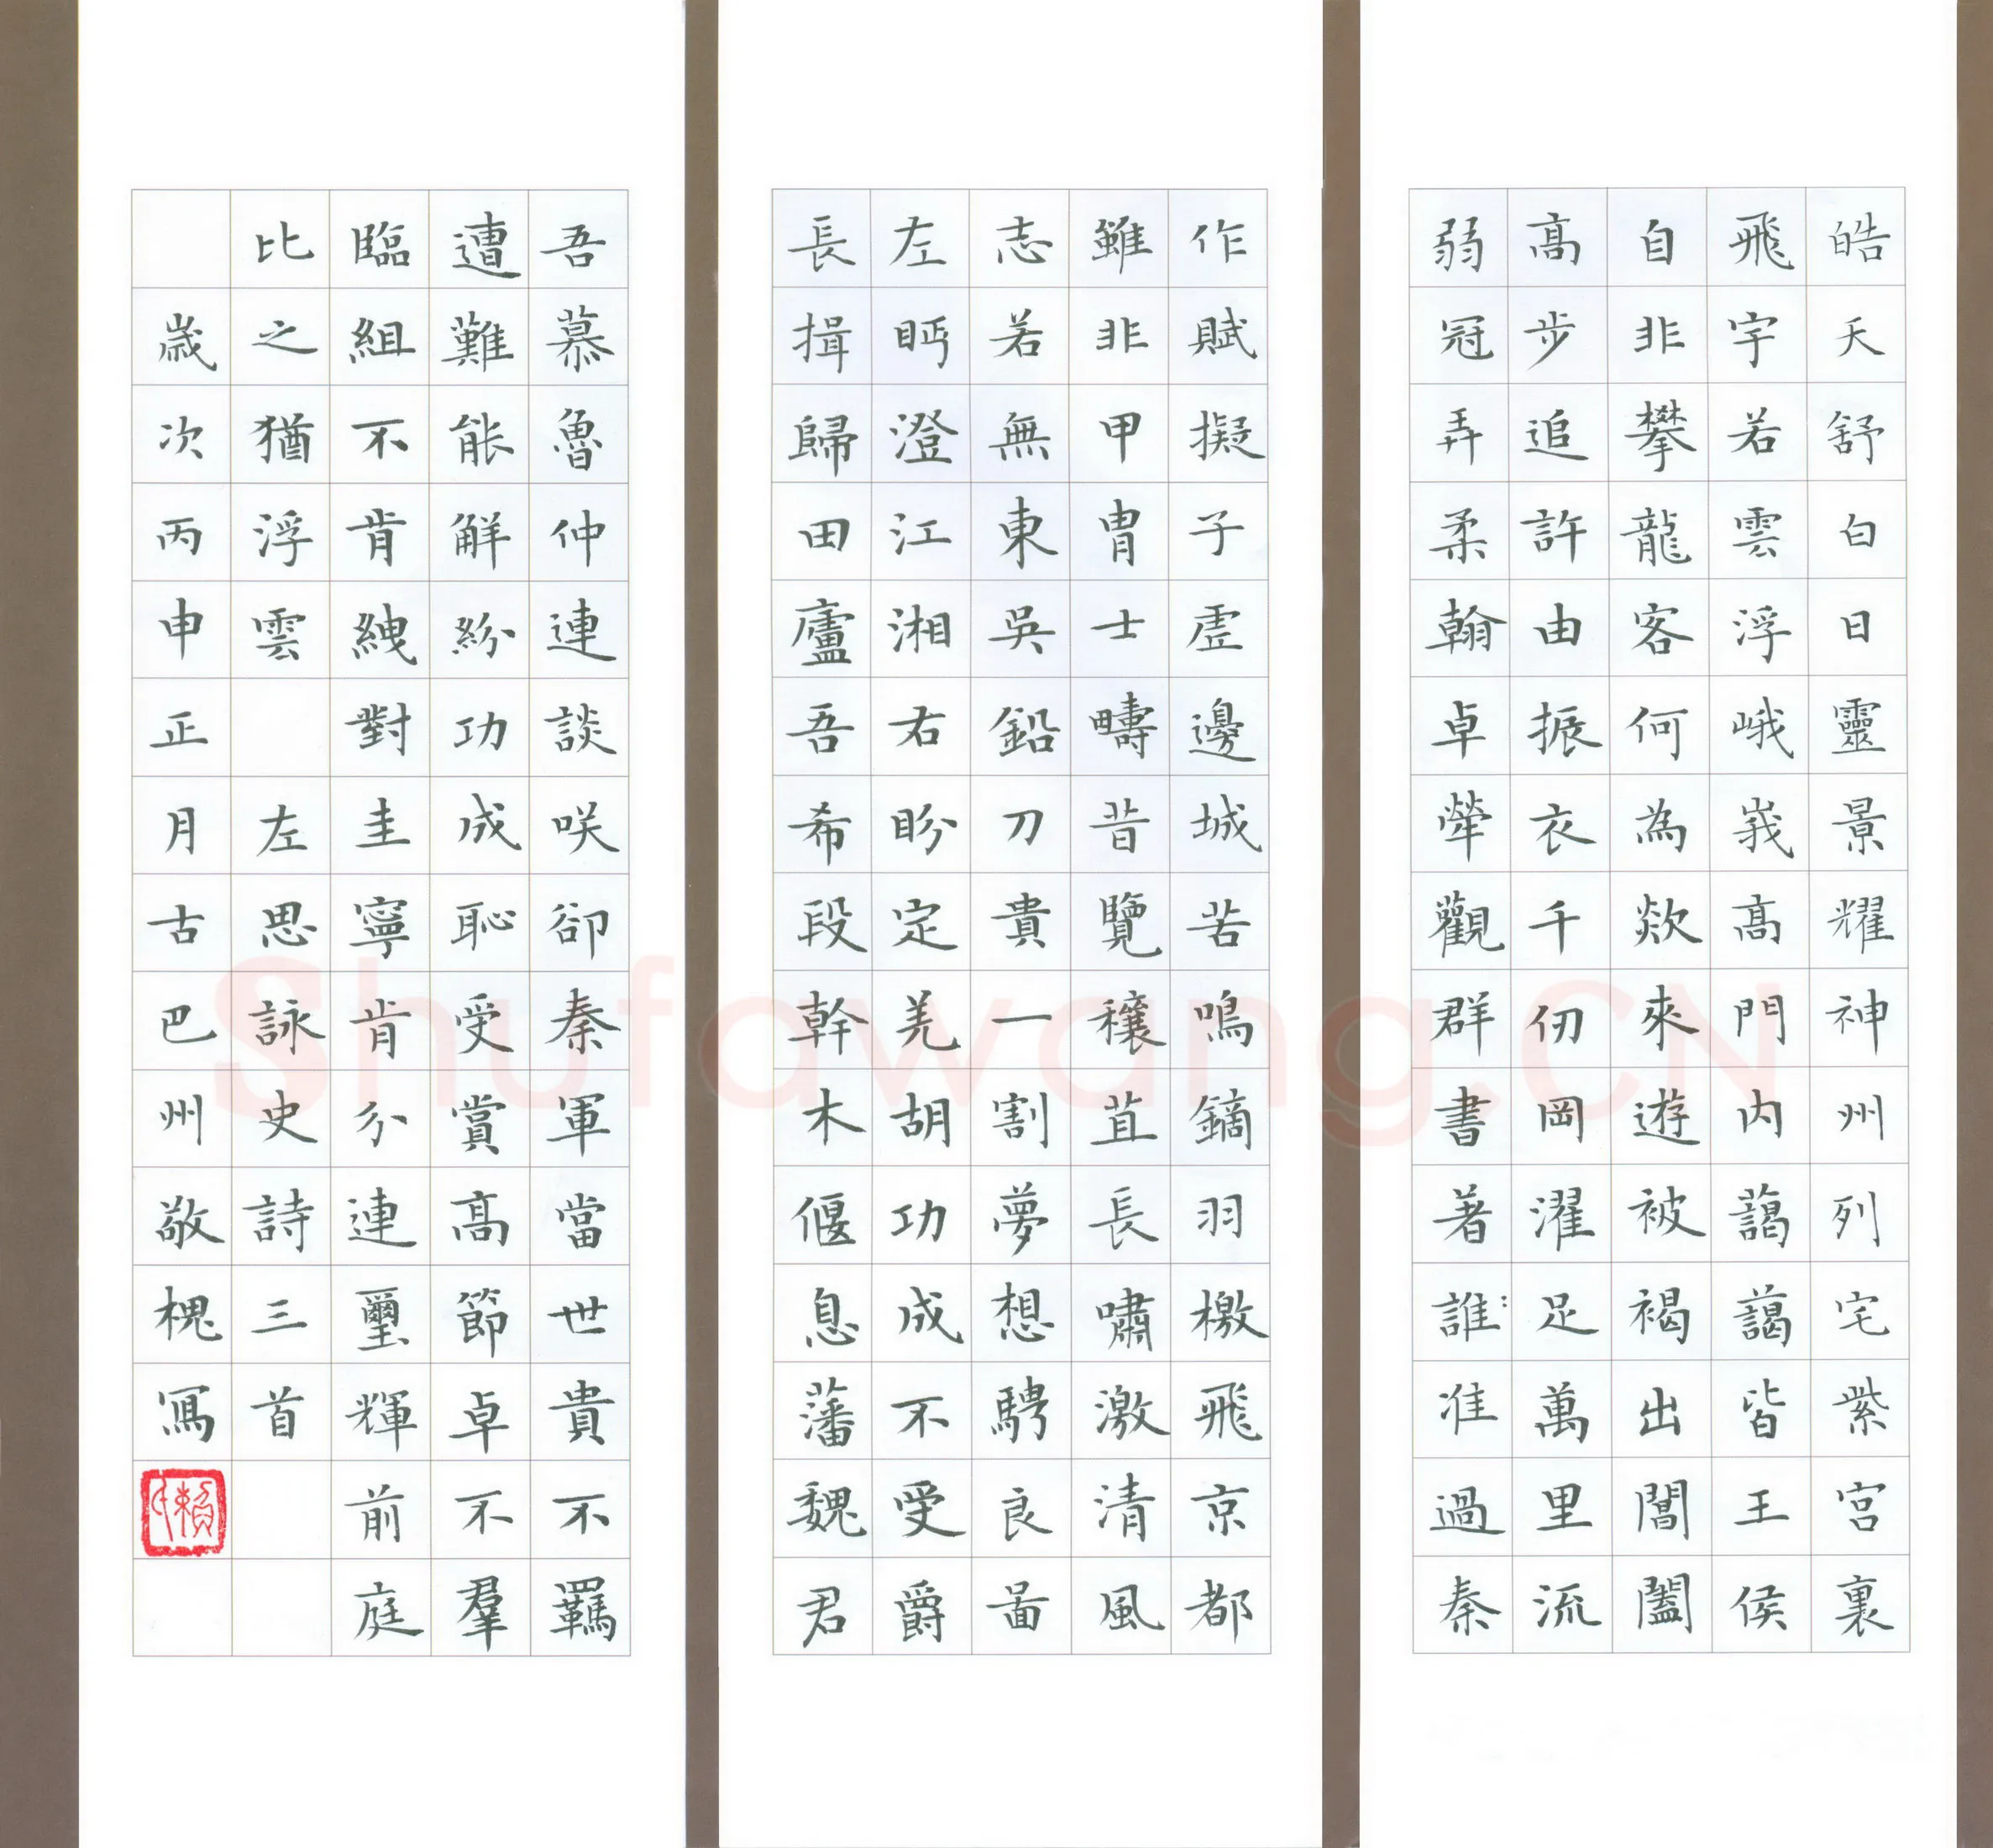 皓天舒白日靈景耀神州列宅紫宮裏
飛宇若雲浮峨峩髙門內藹藹皆王侯
自非攀龍客何為欻來遊被褐出閶闔
髙步追許由振衣千仞岡濯足萬里流
弱冠弄柔翰卓犖觀群書著誰准過秦
作賦擬子虛邊城苦鳴鏑羽檄飛京都
雖非甲冑士疇昔覽穰苴長嘯激清風
志若無東吳鉛刀貴一割夢想騁良啚
左眄澄江湘右盼定羌胡功成不受爵
長揖歸田廬吾希段幹木偃息藩魏君
吾慕魯仲連談咲卻秦軍當世貴不羈
遭難能解紛功成恥受賞髙節卓不羣
臨組不肯緤對圭寧肯分連璽輝前庭
比之猶浮雲 左思詠史詩三首
歲次丙申正月古巴州敬槐寫
賴氏
Shufawang.CN